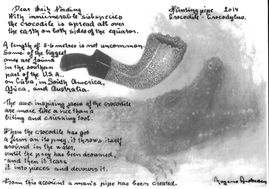 Dear Smita Nending
With innumerable subspecies
the crocodile is spread all over
the earth on both sides of the equator.
A length of 5-6 metre is not uncommon
Some of the biggest
ones are found
in the southern
part of the U.S.A.
on Cuba, in South America,
Africa, and Australia.
The awe inspiring jaws of the crocodile
are more like a vice than a
biting and crushing tool.
When the crocodile has got
a firm on its prey, it throws itself
around in the water,
until the prey has been drowned,
and then it tears
it into pieces and devours it.
From this ancient a man's pipe has been created
Hunting pipe 2014
Crocodile - Crocodylus.
Rogers